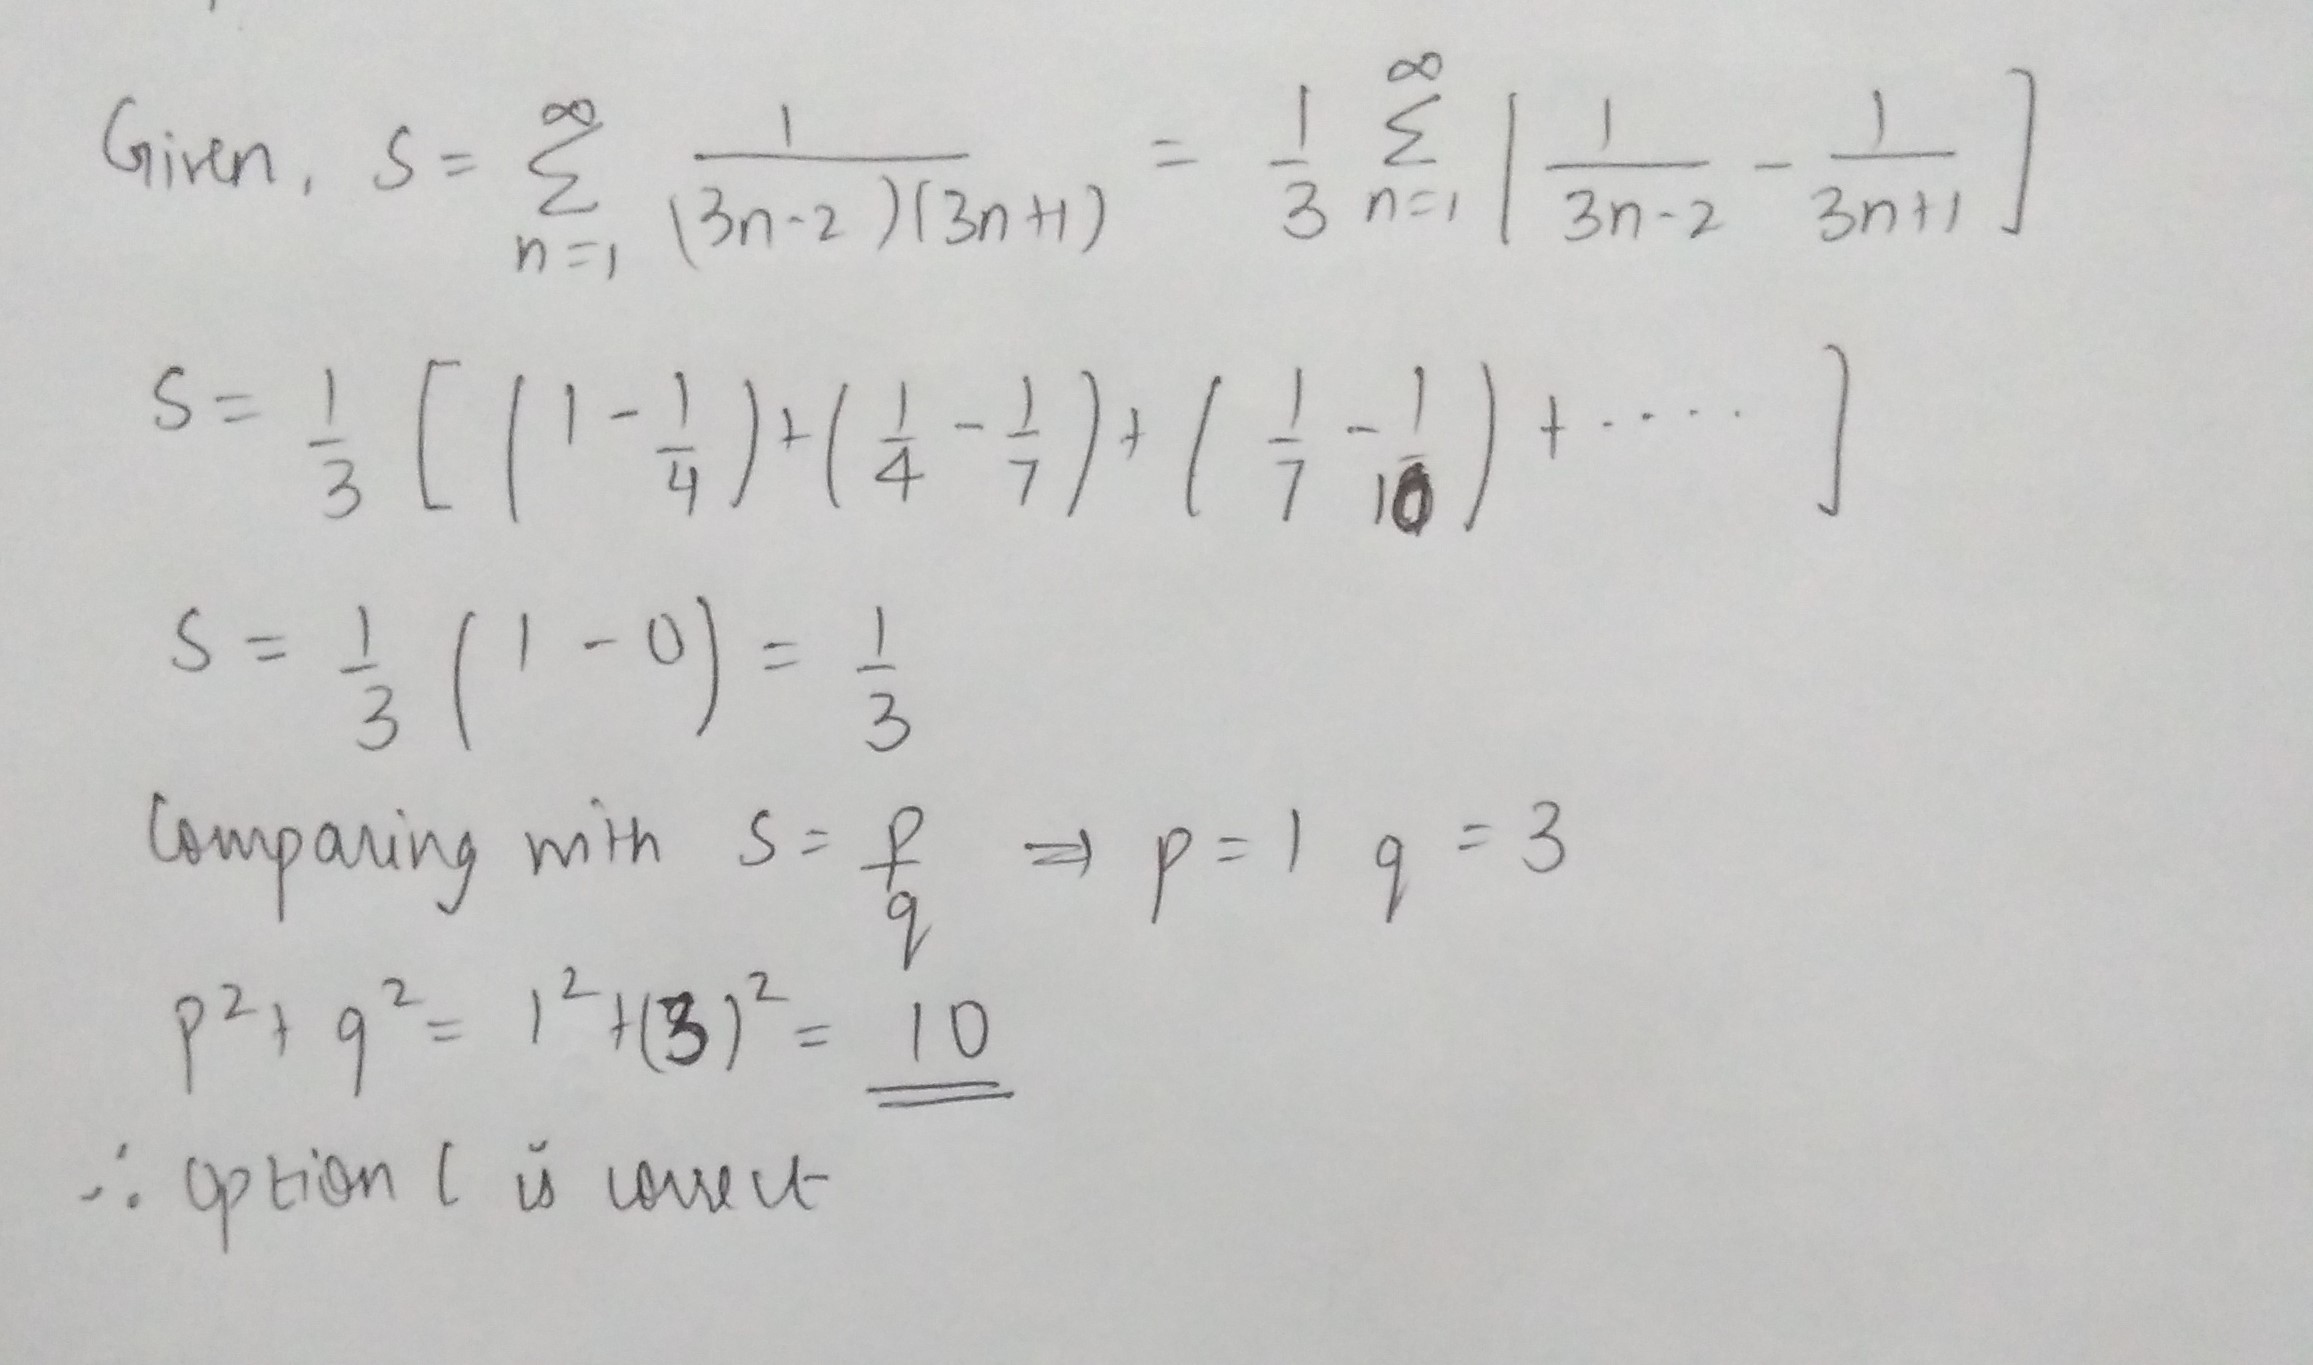 Given, S = ∞ Σ n=1 1/((3n-2)(3n+1)) = 1/3 ∞ Σ n=1 [1/(3n-2) - 1/(3n+1)]
S = 1/3 [(1 - 1/4) + (1/4 - 1/7) + (1/7 - 1/10) + ..... ]
S = 1/3 (1 - 0) = 1/3
Comparing with S = p/q ⇒ p = 1 q = 3
p² + q² = 1² + (3)² = 10
∴ option C is correct